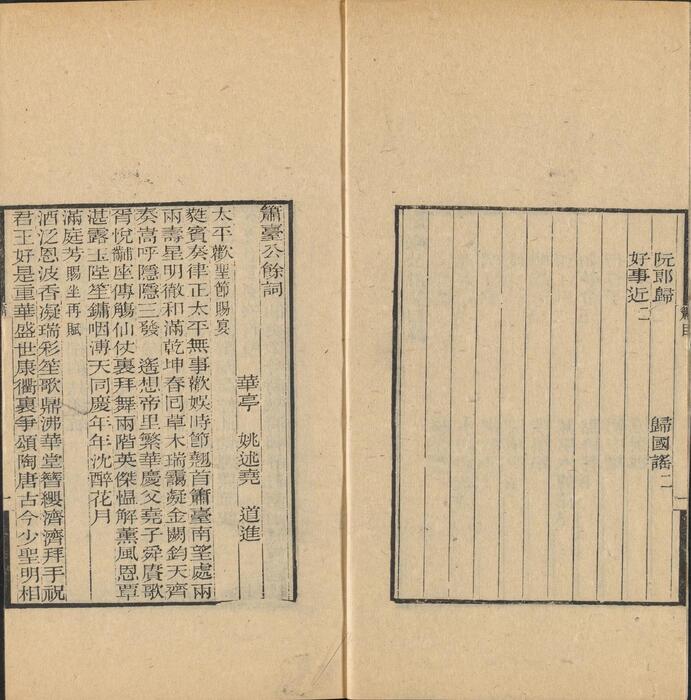 阮郎歸 歸國謠二
好事近二
簫臺公餘詞
華亭 姚述堯 道進
太平歡聖節賜宴
蕤賓奏律正太平無事歡娛時節翹首簫臺南望處兩
兩壽星明徹和滿乾坤春回草木瑞靄凝金闕鈞天齊
奏嵩呼隱隱三發 遙想帝里繁華慶父堯子舜賡歌
胥悅黼座傳觴仙仗裏拜舞兩階英傑慍解薰風恩覃
湛露玉陛笙鏞咽溥天同慶年年沈醉花月
滿庭芳賜坐再賦
酒泛恩波香凝瑞彩笙歌鼎沸華堂簪纓濟濟拜手祝
君王好是重華盛世康衢裏爭頌陶唐古今少聖明相